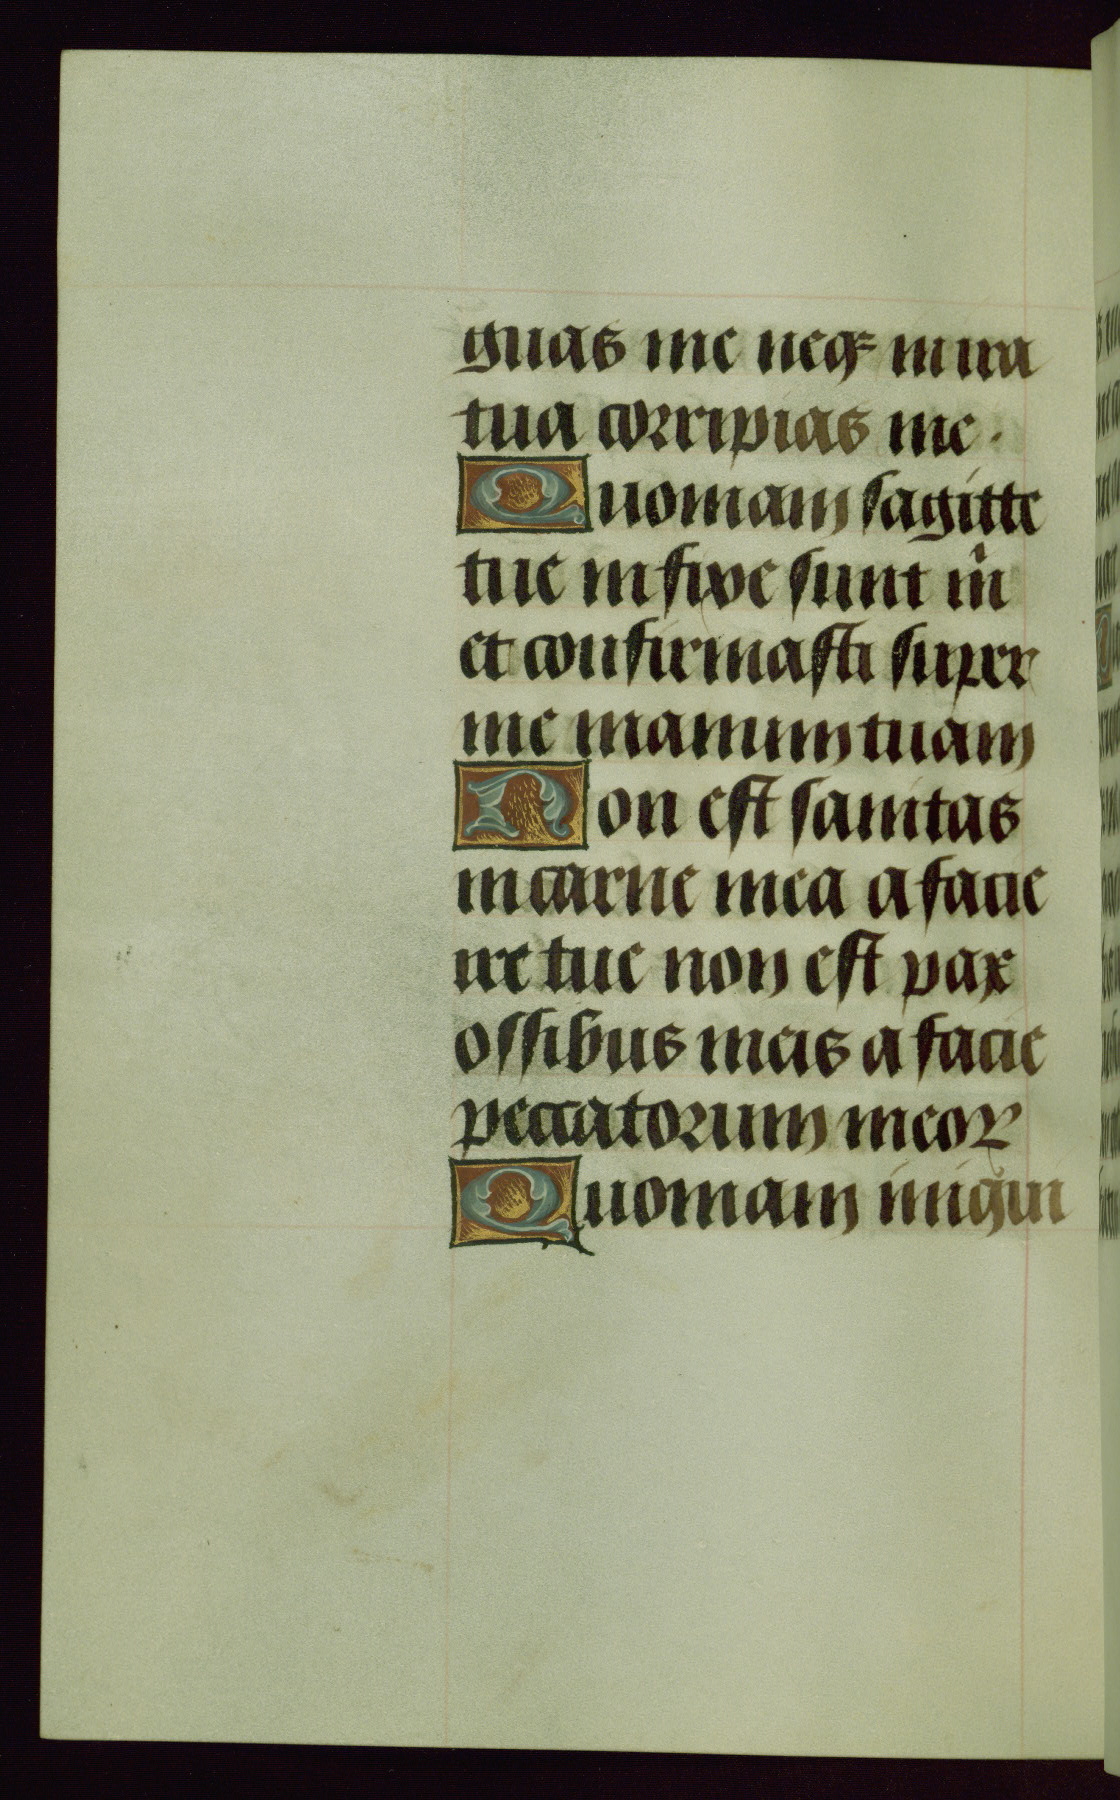 guas me neqꝫ in ira
tua corripias me.
Quoniam sagitte
tue infixe sunt m̃
et confirmasti super
me manum tuam
Non est sanitas
in carne mea a facie
ire tue non est pax
ossibus meis a facie
peccatorum meoꝝ
Quoniam iniqui